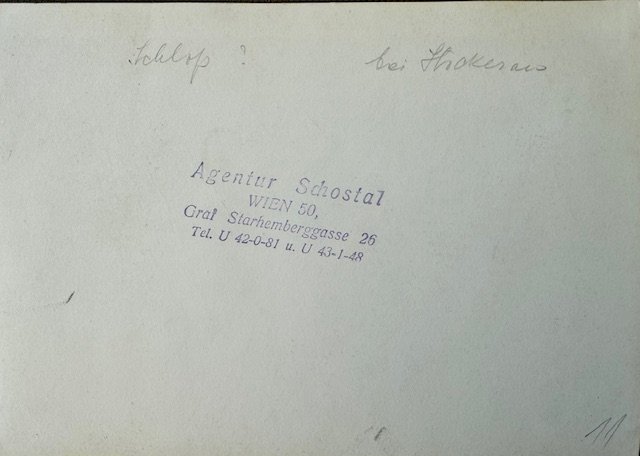 Schloß ? bei Stockerau
Agentur Schostal
WIEN 50,
Graf Starhemberggasse 26
Tel. U 42-0-81 u. U 43-1-48
11